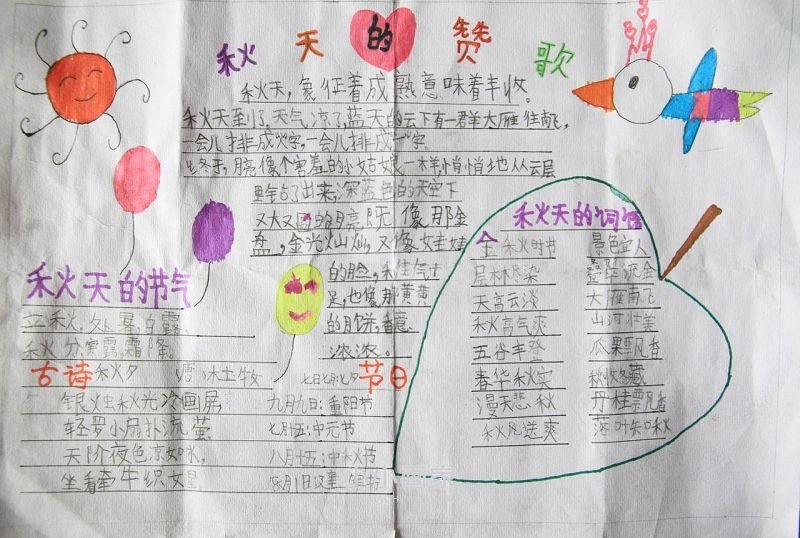 秋天的赞歌
秋天，象征着成熟意味着丰收。
秋天到了，天气凉了，蓝天的云下有一群大雁往南飞，
一会儿排成人字，一会儿排成一字。
月亮像个害羞的小姑娘一样悄悄地从云层
里钻了出来，深蓝色的天空下
又大又圆的月亮既像那金
盘，金光灿灿，又像娃娃
的脸，
足，也像那黄黄
的月饼，香意
浓浓。
秋天的节气
立秋，处暑，白露
秋分寒露，霜降。
古诗
秋夕 唐 杜牧
银烛秋光冷画屏
轻罗小扇扑流萤
天阶夜色凉如水，
坐看牵牛织女星
节日
七月七：七夕
九月九日：重阳节
七月十五：中元节
八月十五：中秋节
秋天的词语
金秋时节 景色宜人
层林尽染 叠翠流金
天高云淡 大雁南飞
秋高气爽 山河壮美
五谷丰登 瓜果飘香
春华秋实 秋收冬藏
漫天悲秋 丹桂飘香
秋风送爽 落叶知秋